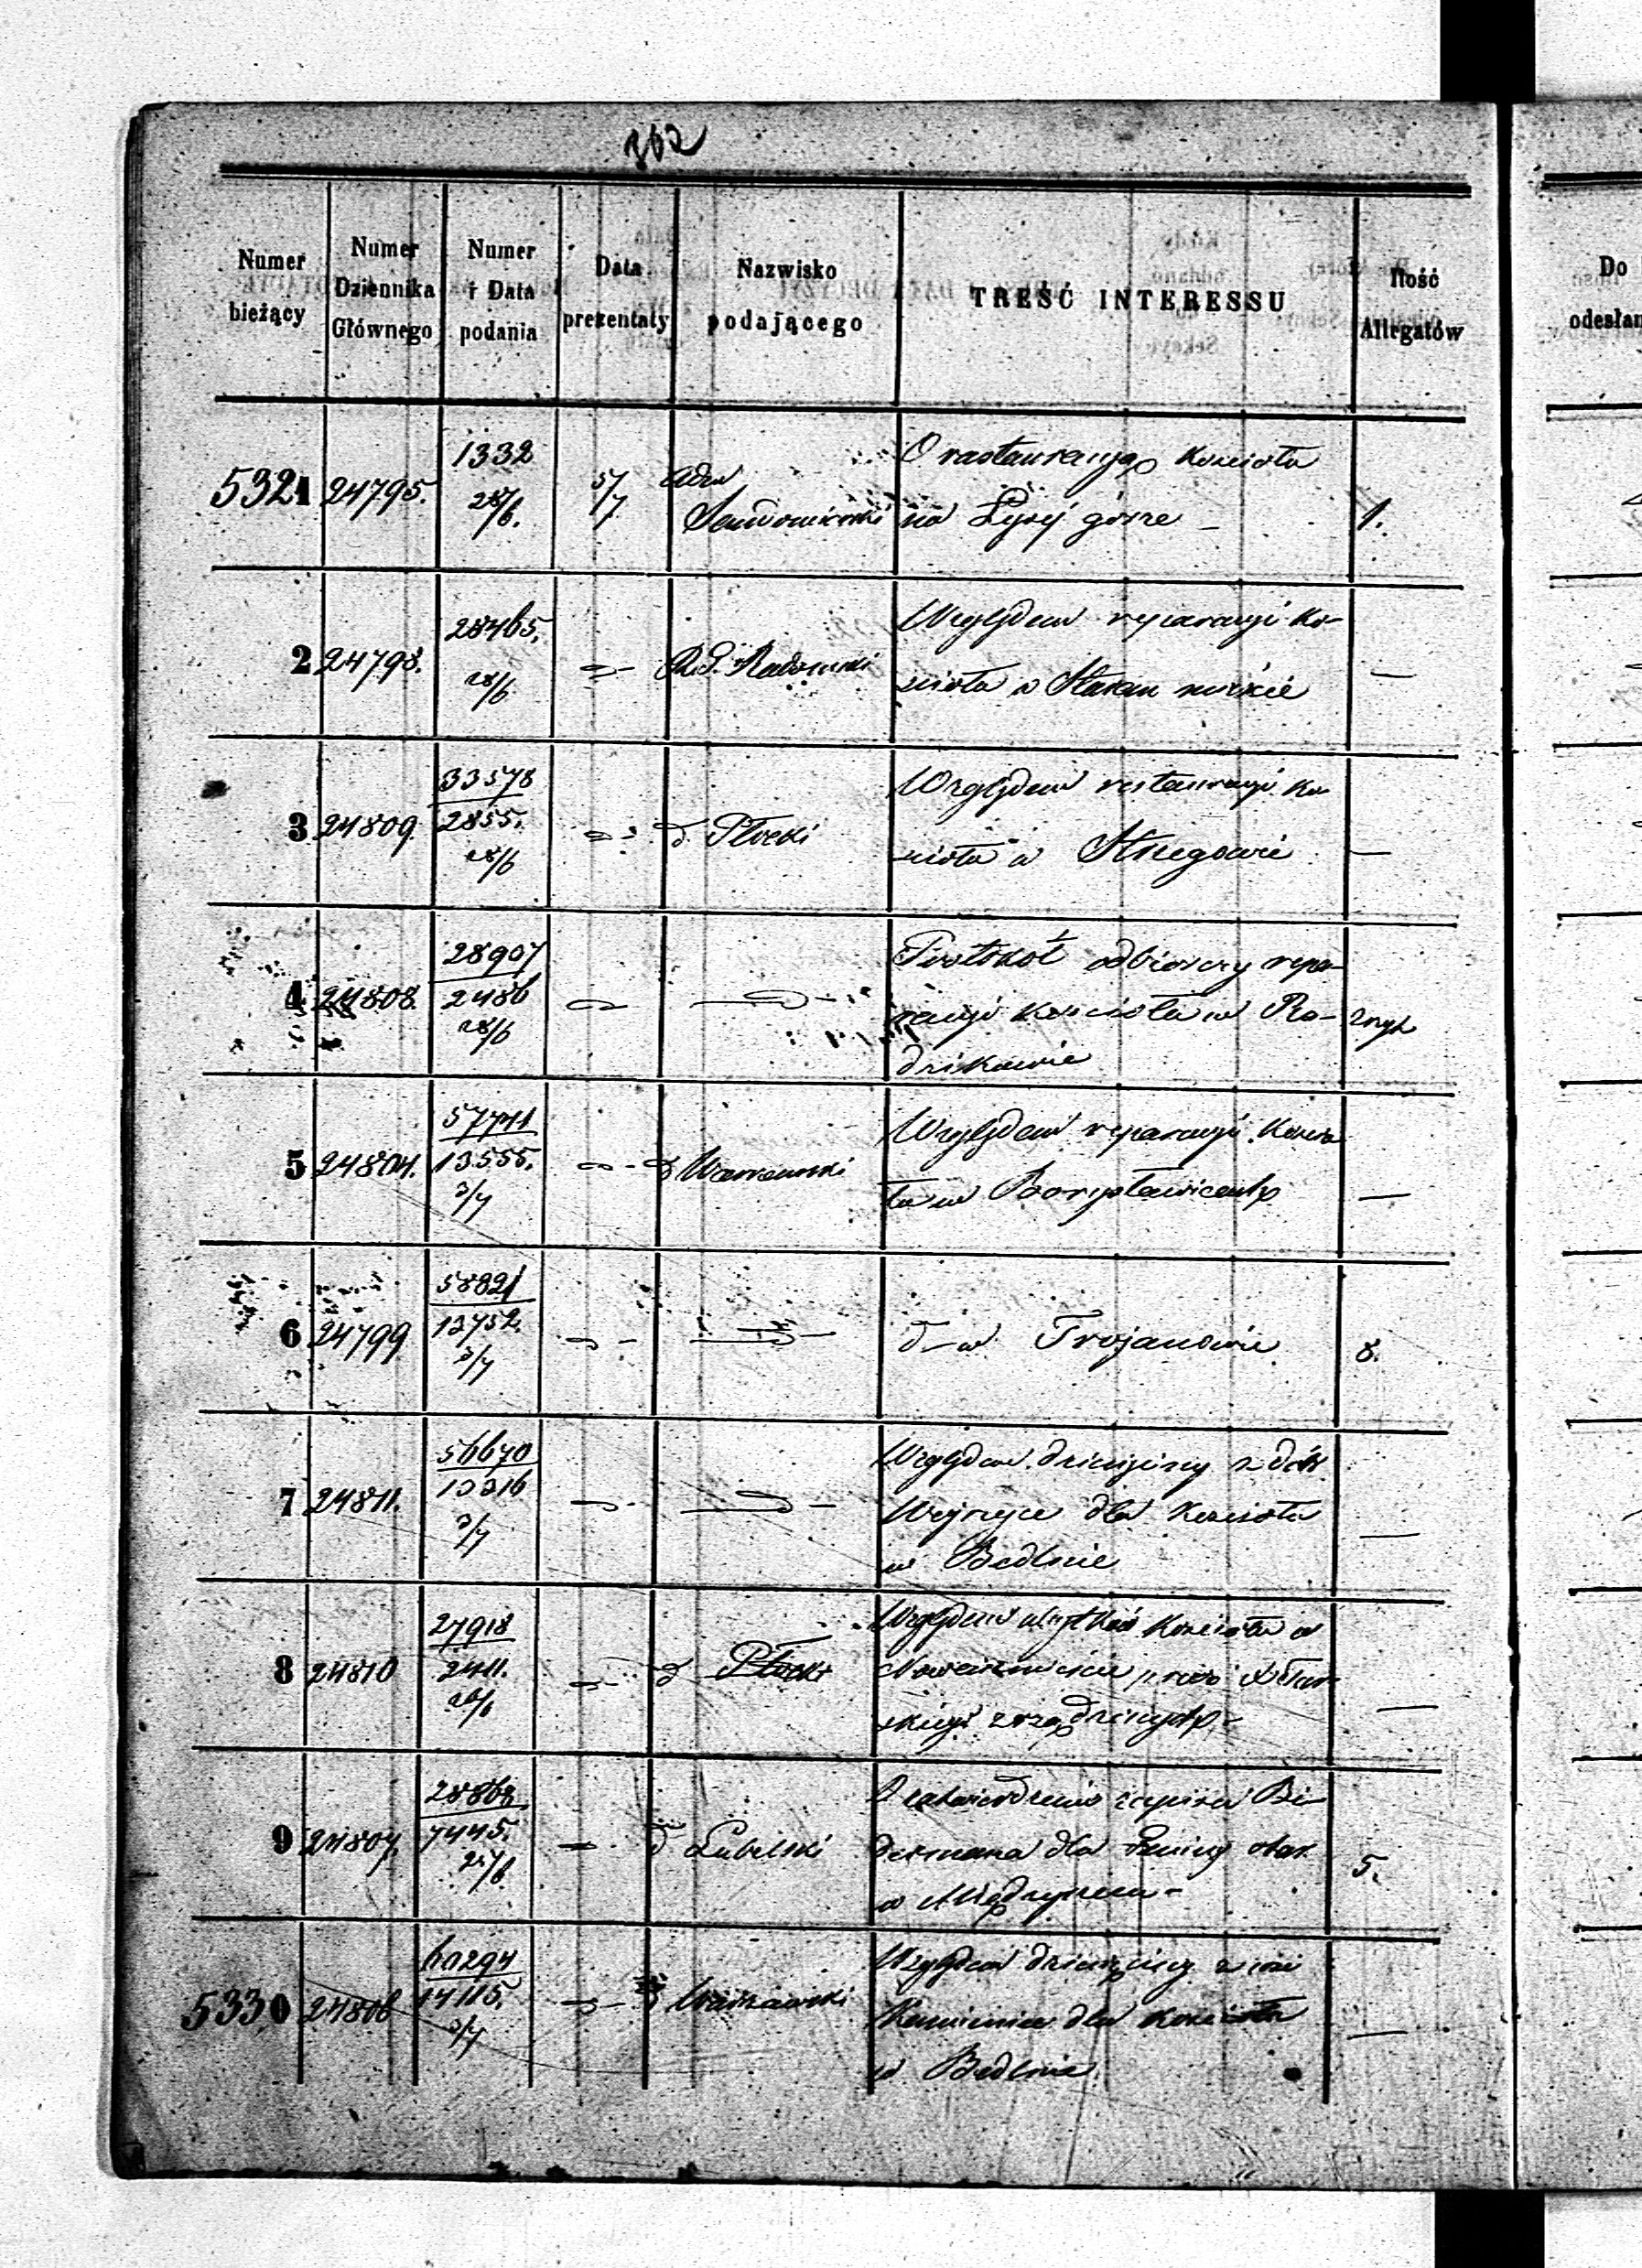 302
Numer bieżący
Numer Dziennika Głównego
Numer i Data podania
Data prezentaty
Nazwisko podającego
TREŚĆ INTERESSU
Ilość Allegatów
Do
odesłan
5321 24795. 1332 28/6. 5/7 Adm O restauracyą Kościoła
Sandomierski na Łysej górze – 1.
2 24798. 28465. 28/6 R.G. Radomski Względem reparacyi Ko-
ścioła w Starem mieście —
3 24809. 33578 2855. 28/6 d Płocki Względem restauracyi Ko-
ścioła w Strzegowie —
4 24808. 28907 2486 28/6 Protokół odbiorczy repa-
racyi Kościoła w Ra- 2nyh
dzikowie
5 24804. 57711 13555. 3/7 d Warszawski Względem reparacyi Kościo
ła w Borysławicach —
6 24799 58821 13752. 3/7 d – w Trojanowie 8.
7 24811. 56670 13316 3/7 Względem dziesięciny z dóbr
Wojszyce dla Kościoła
w Bedlnie —
8 24810 27918 2411. d Płocki Względem użytków Kościoła w
Nowemieście przez
skiego zrządzonych —
9 24807. 28868 7445. 27/6 d Lubelski O zatwierdzenie zapisu Bi-
dermana dla Gminy
w Międzyrzecu – 5.
5330 24806 60294 14115. 3/7 d Warszawski Względem dziesięciny z wsi
Kamienica dla Kościoła
w Bedlnie —